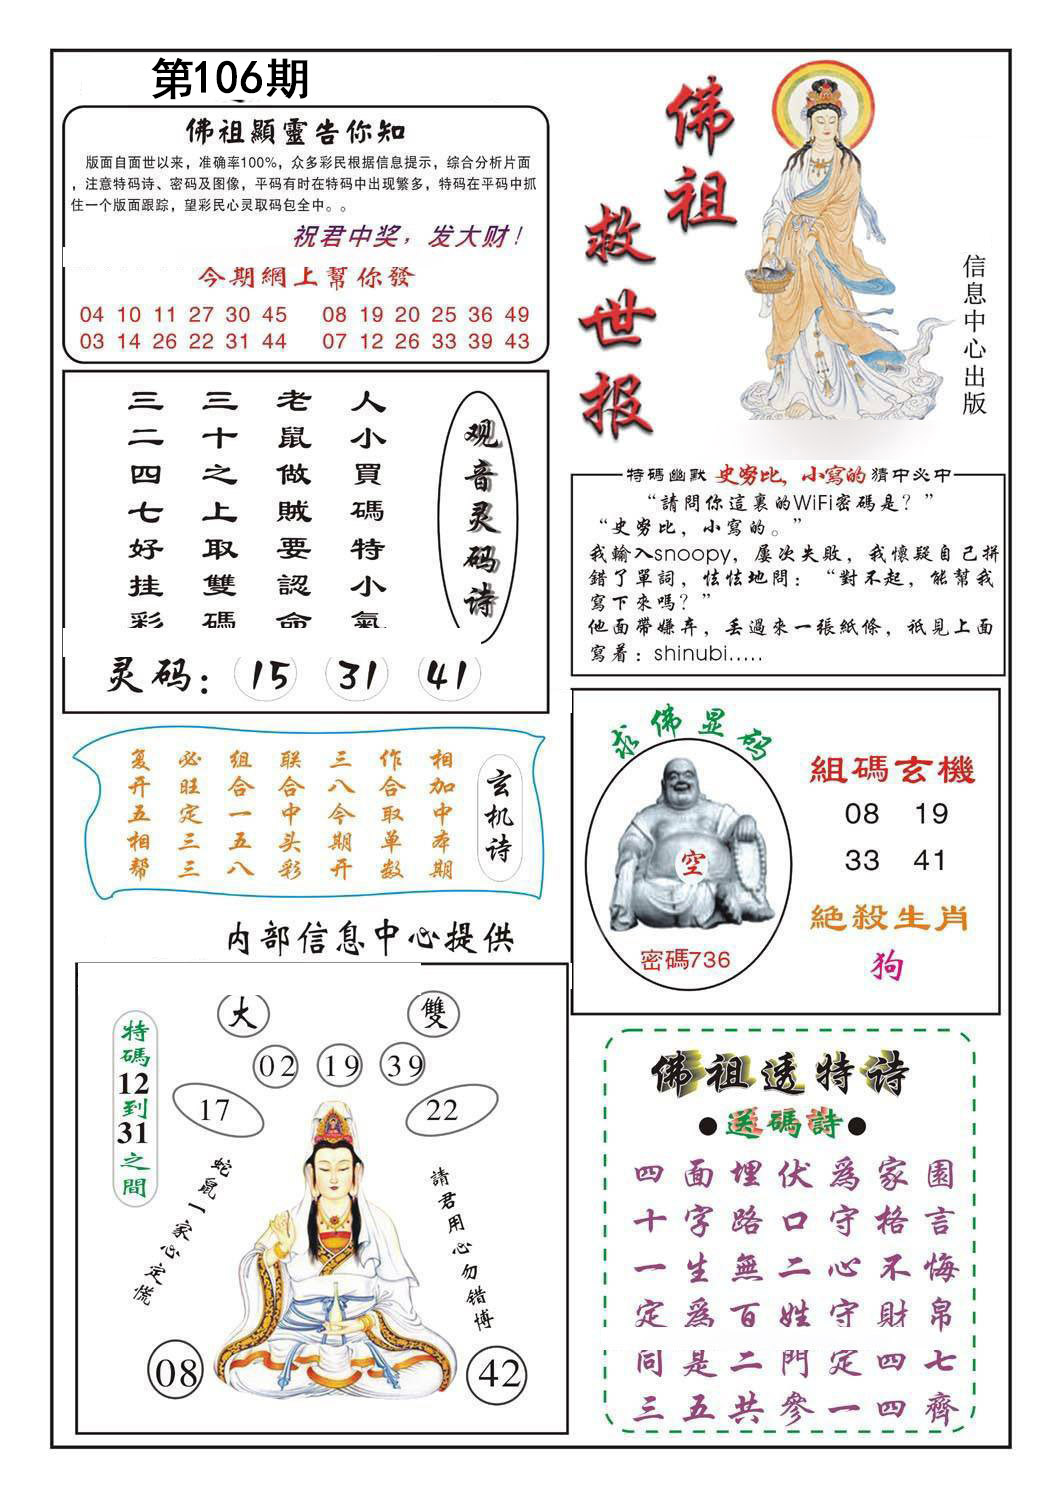 第106期
佛祖顯靈告你知
版面自面世以来，准确率100%，众多彩民根据信息提示，综合分析片面
，注意特码诗、密码及图像，平码有时在特码中出现繁多，特码在平码中抓
住一个版面跟踪，望彩民心灵取码包全中。。
祝君中奖，发大财！
今期網上幫你發
04 10 11 27 30 45 08 19 20 25 36 49
03 14 26 22 31 44 07 12 26 33 39 43
佛祖
救世报
信息中心出版
观音灵码诗
人小買碼特小氣
老鼠做賊要認命
三十之上取雙碼
三二四七好挂彩
灵码： 15 31 41
特碼幽默 史努比，小寫的 猜中必中
“請問你這裏的WiFi密碼是？”
“史努比，小寫的。”
我輸入snoopy，屢次失敗，我懷疑自己拼
錯了單詞，怯怯地問：“對不起，能幫我
寫下來嗎？”
他面帶嫌弃，丢過來一張紙條，衹見上面
寫着：shinubi.....
玄机诗
相加中本期
作合取单数
三八今期开
联合中头彩
组合一五八
必旺定三三
复开五相帮
求佛显码
空
密碼736
組碼玄機
08 19
33 41
絶殺生肖
狗
内部信息中心提供
特碼12到31之間
大 雙
02 19 39
17 22
蛇鼠一家心定慌
請君用心勿错博
08 42
佛祖透特诗
●送碼詩●
四面埋伏爲家園
十字路口守格言
一生無二心不悔
定爲百姓守財帛
同是二門定四七
三五共參一四齊